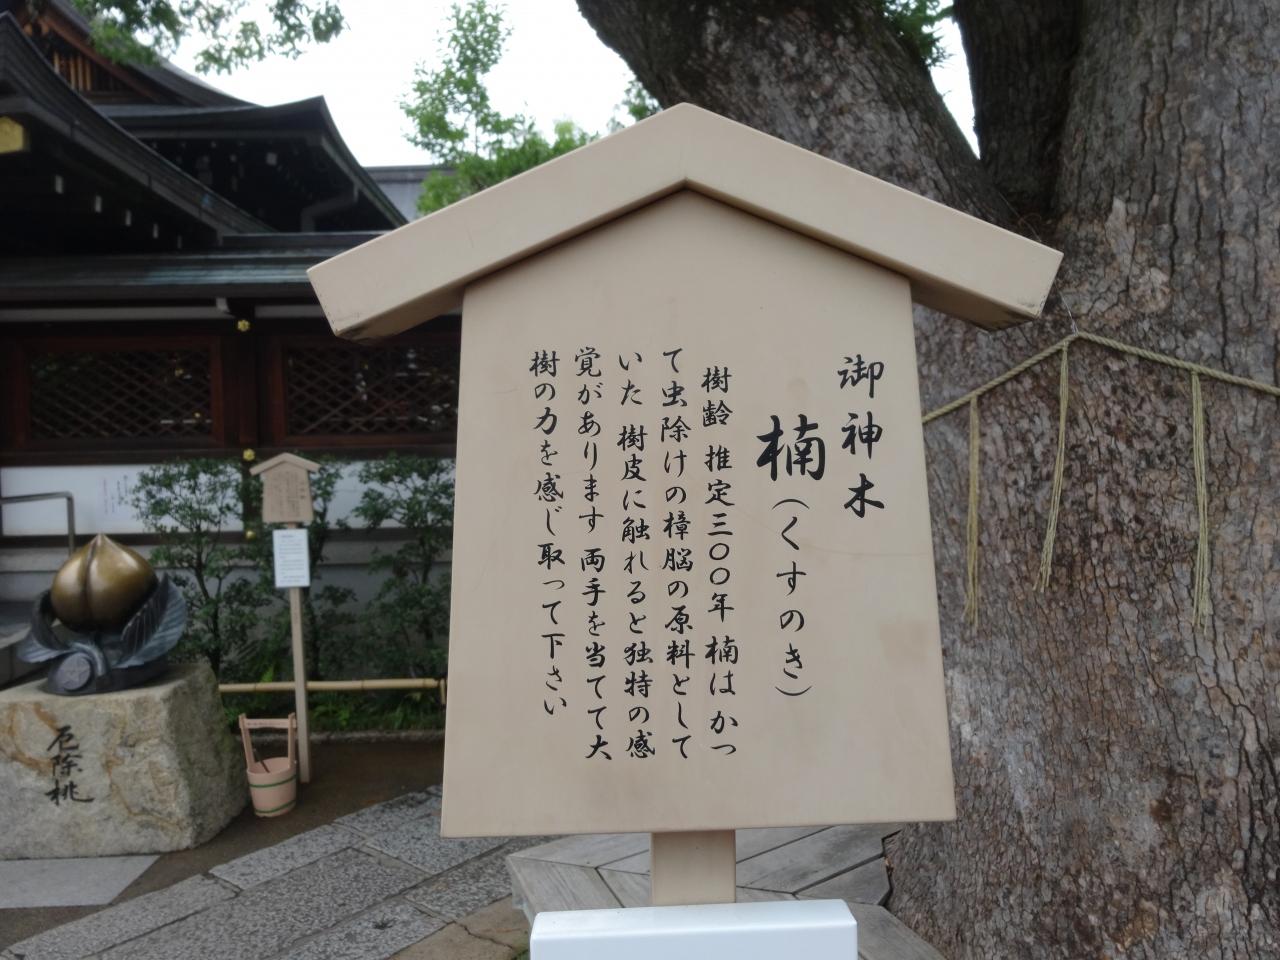 御神木
楠(くすのき)
樹齢 推定三〇〇年 楠は かつ
て虫除けの樟脳の原料として
いた 樹皮に触れると独特の感
覚があります 両手を当てて大
樹の力を感じ取って下さい
厄除桃